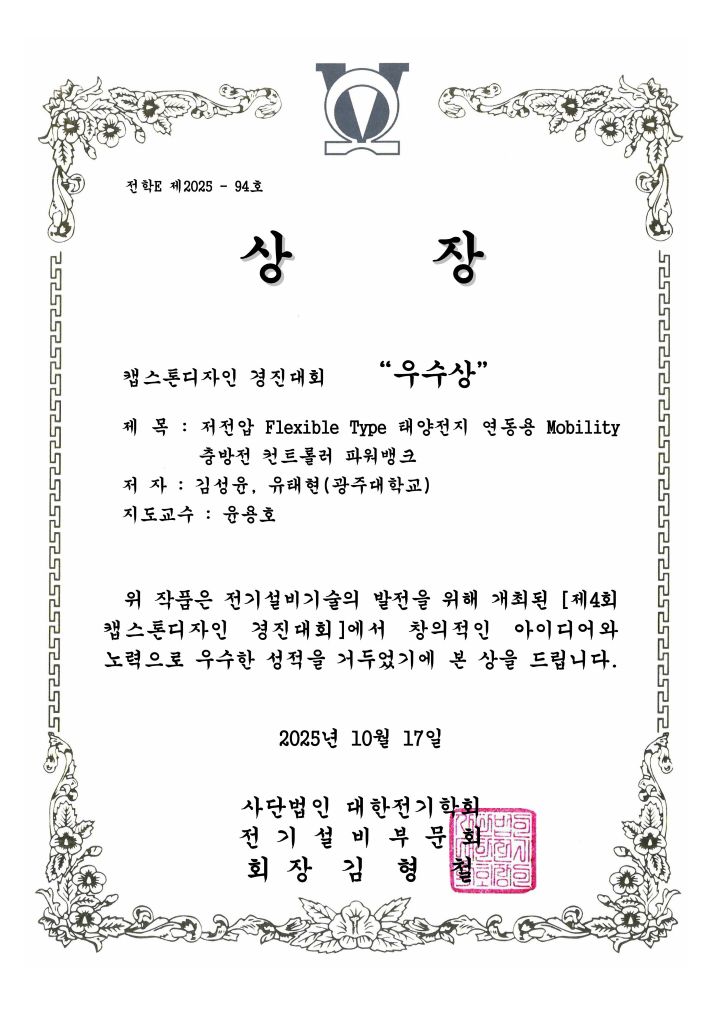 전학E 제2025 - 94호
상 장
캡스톤디자인 경진대회 “우수상”
제 목 : 저전압 Flexible Type 태양전지 연동용 Mobility
충방전 컨트롤러 파워뱅크
저 자 : 김성윤, 유태현(광주대학교)
지도교수 : 윤용호
위 작품은 전기설비기술의 발전을 위해 개최된 [제4회
캡스톤디자인 경진대회]에서 창의적인 아이디어와
노력으로 우수한 성적을 거두었기에 본 상을 드립니다.
2025년 10월 17일
사단법인 대한전기학회
전 기 설 비 부 문 회
회 장 김 형 철